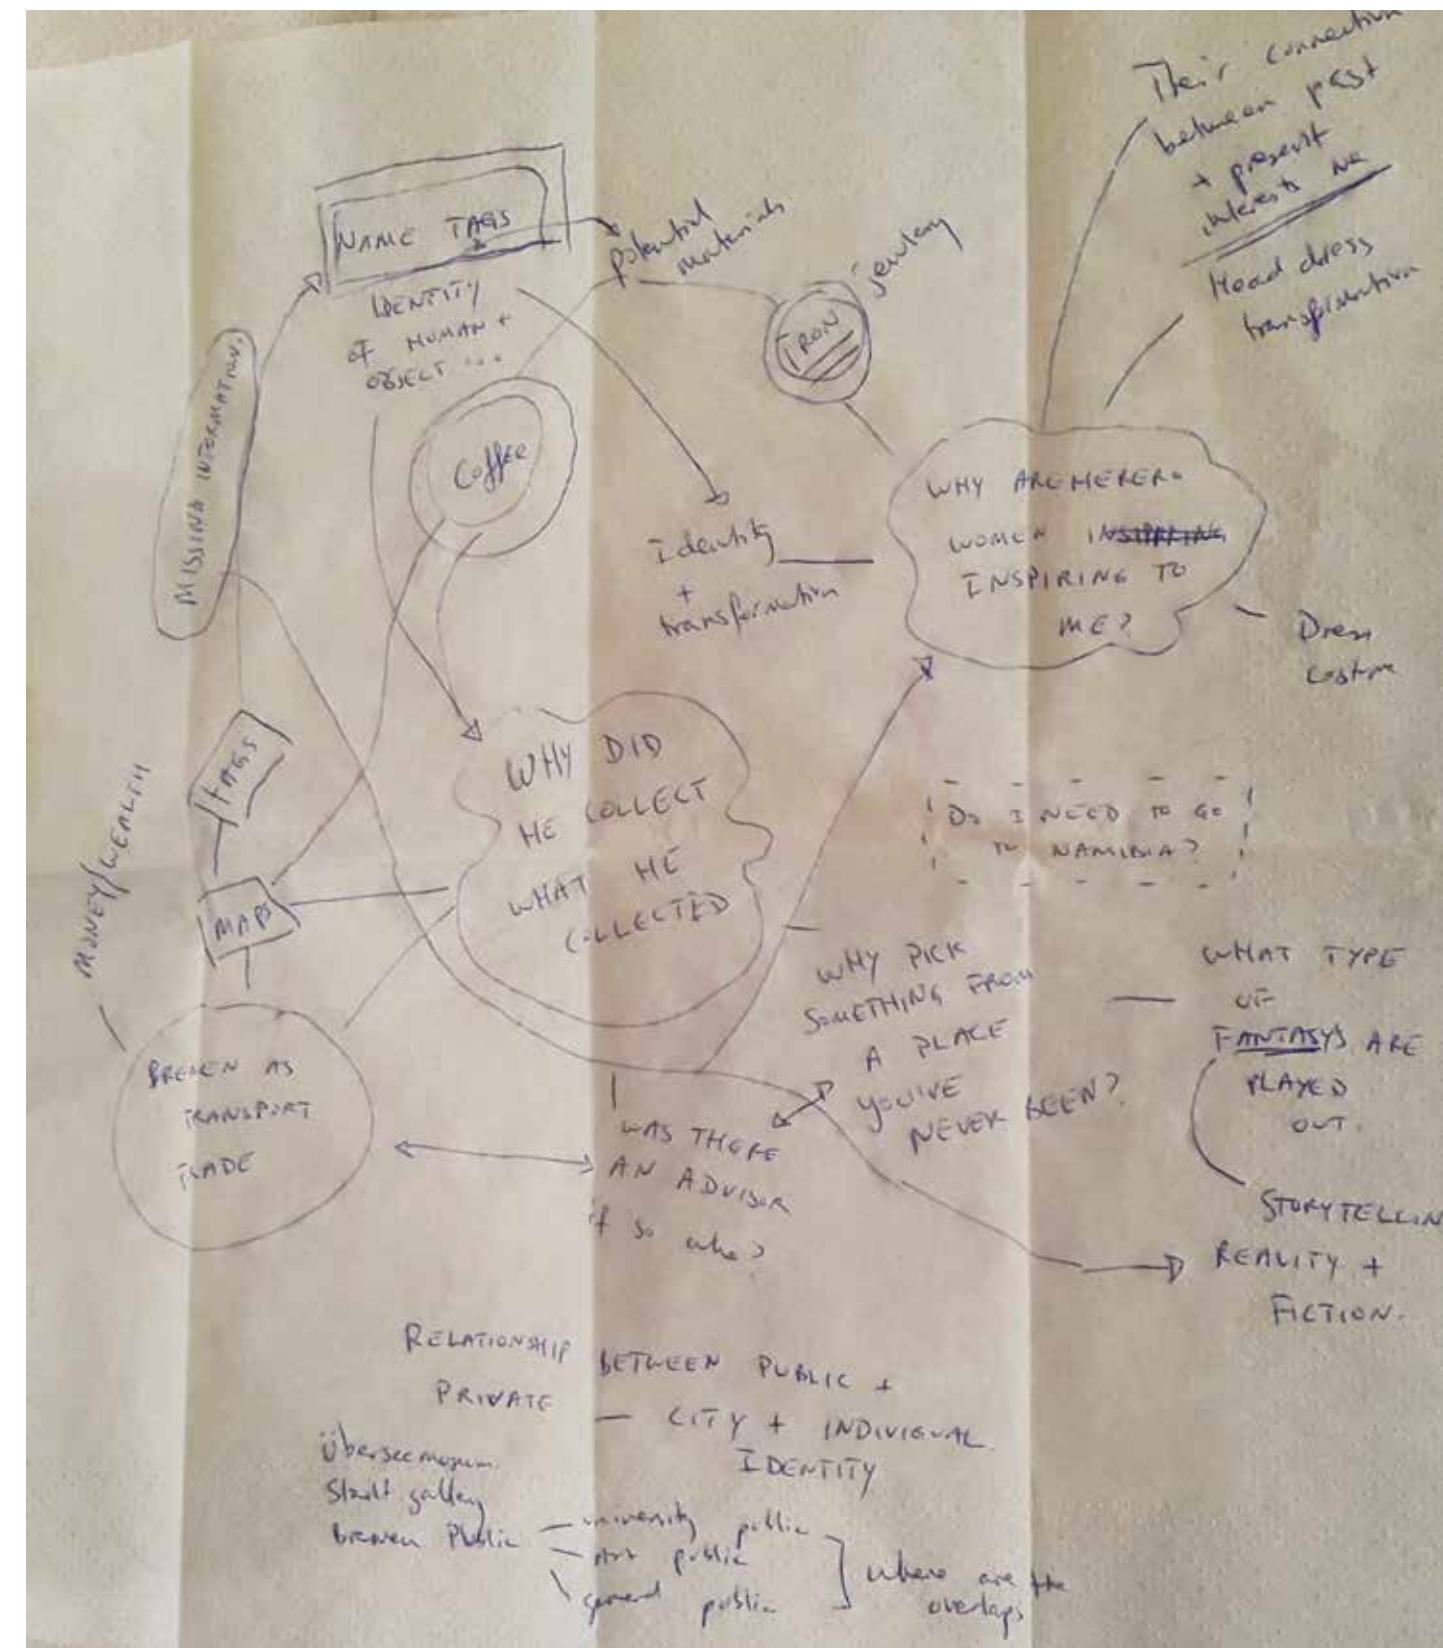 Their connection
between past
+ present
interests me
Head dress
transformation
NAME TAGS
IDENTITY
OF HUMAN +
OBJECT ...
potential
materials
IRON
jewlery
MISSING INFORMATION.
Coffee
Identity
+
transformation
WHY ARE HERERO
WOMEN INSIPRING
INSPIRING TO
ME?
Dress
costume
TAGS
MAPS
MONEY/WEALTH
WHY DID
HE COLLECT
WHAT HE
COLLECTED
Do I NEED to GO
to NAMIBIA?
WHY PICK
SOMETHING FROM
A PLACE
YOU'VE
NEVER BEEN?
WHAT TYPE
OF
FANTASYS ARE
PLAYED
OUT.
BREMEN AS
TRANSPORT
TRADE
WAS THERE
AN ADVISOR
if so who?
STORYTELLIN
REALITY +
FICTION.
RELATIONSHIP BETWEEN PUBLIC +
PRIVATE
— CITY + INDIVIGUAL
IDENTITY
Überseemuseum.
Stadt gallery
Bremen Public — university public
— Art public
\ general public
where are the
overlaps